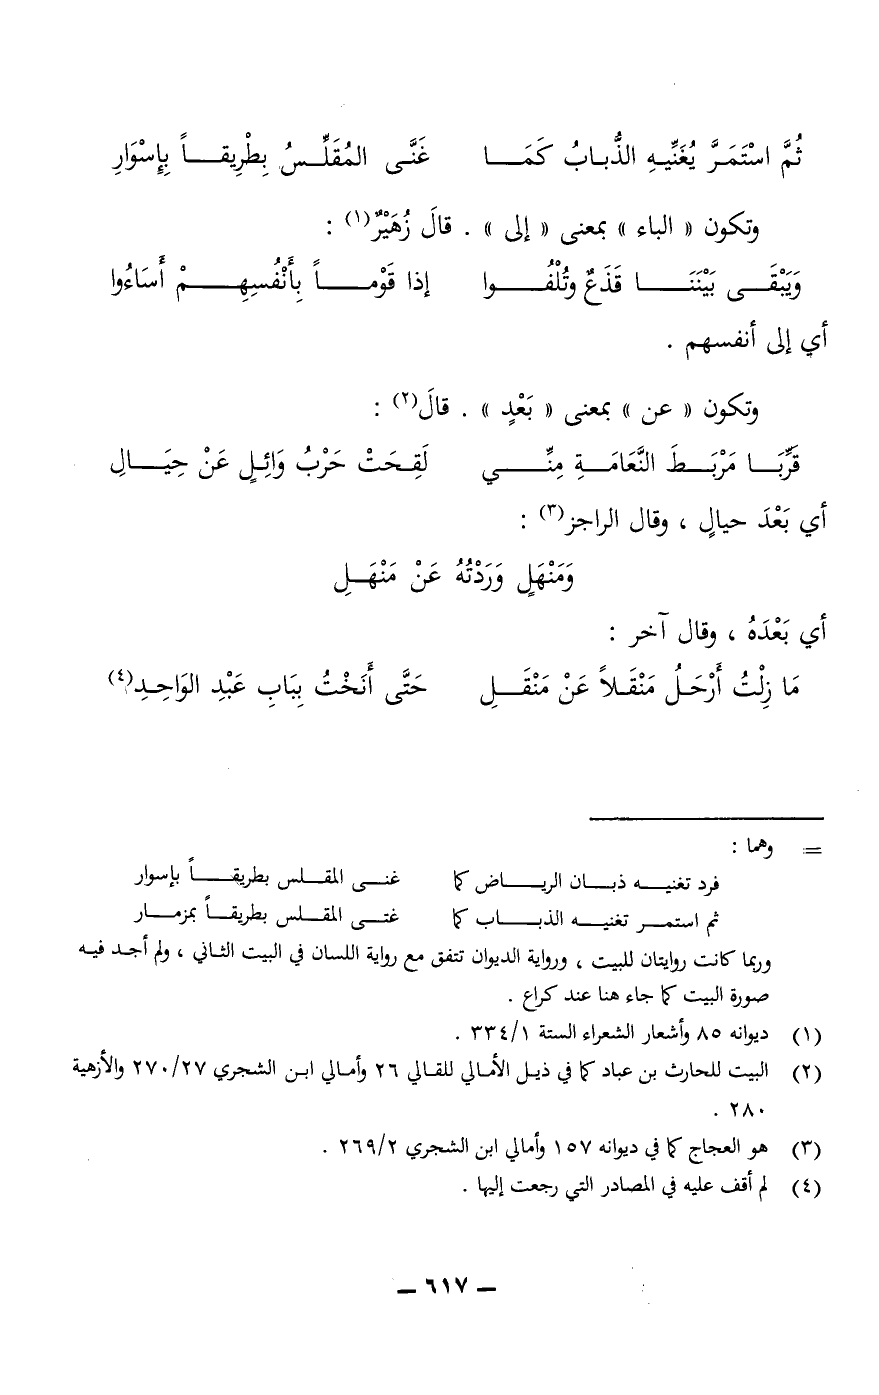 ثُمَّ اسْتَمَرَّ يُغَنِّيهِ الذُّبابُ كَمَا غَنَّى المُقَلِّسُ بِطْرِيقاً بِإسْوَارِ
وتكون « الباء » بمعنى « إلى » . قالَ زُهَيْرٌ(١) :
وَيَبْقَى بَيْنَنَا قَذَعٌ وتُلْفُوا إذا قَوْماً بِأَنْفُسِهِمْ أَسَاءُوا
أي إلى أنفسهم .
وتكون « عن » بمعنى « بَعْدٍ » . قالَ(٢) :
قَرِّبَا مَرْبَطَ النَّعَامَةِ مِنِّي لَقِحَتْ حَرْبُ وَائِلٍ عَنْ حِيَالِ
أي بَعْدَ حيالٍ ، وقال الراجز(٣) :
وَمَنْهَلٍ وَرَدْتُهُ عَنْ مَنْهَلِ
أي بَعْدَهُ ، وقال آخر :
مَا زِلْتُ أَرْحَلُ مَنْقَلاً عَنْ مَنْقَلِ حَتَّى أَنَخْتُ بِبَابِ عَبْدِ الوَاحِدِ(٤)
= وهما :
فرد تغنيه ذبان الرياض كما غنى المقلس بطريقاً بإسوار
ثم استمر تغنيه الذباب كما غنى المقلس بطريقاً بمزمار
وربما كانت روايتان للبيت ، ورواية الديوان تتفق مع رواية اللسان في البيت الثاني ، ولم أجد فيه
صورة البيت كما جاء هنا عند كراع .
(١) ديوانه ٨٥ وأشعار الشعراء الستة ٣٣٤/١ .
(٢) البيت للحارث بن عباد كما في ذيل الأمالي للقالي ٢٦ وأمالي ابن الشجري ٢٧٠/٢٧ والأزهية
٢٨٠ .
(٣) هو العجاج كما في ديوانه ١٥٧ وأمالي ابن الشجري ٢٦٩/٢ .
(٤) لم أقف عليه في المصادر التي رجعت إليها .
– ٦١٧ –